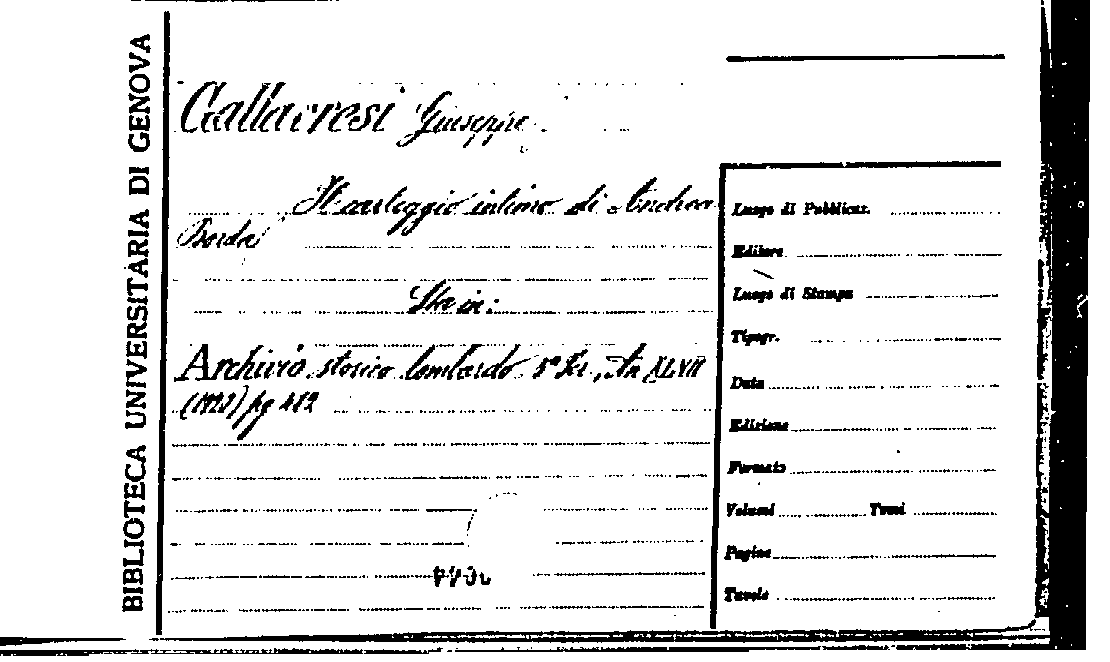 BIBLIOTECA UNIVERSITARIA DI GENOVA
Gallavresi Giuseppe
Il carteggio intimo di Andrea
Borda
Sta in:
Archivio storico lombardo 5ª Ser., An XLVII
pg 412
Luogo di Pubblicaz.
Editore
Luogo di Stampa
Tipogr.
Data
Edizione
Formato
Volumi Tomi
Pagine
Tavole